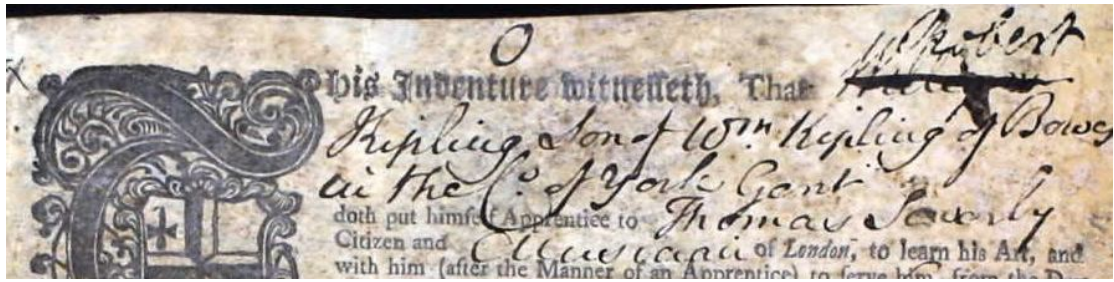 O
Robert
This Indenture witnesseth, That
Kipling Son of Wm. Kipling of Bowes
in the Co. of York Gent
doth put himself Apprentice to Thomas
Citizen and Musician of London, to learn his Art, and
with him (after the Manner of an Apprentice) to serve him, from the Day